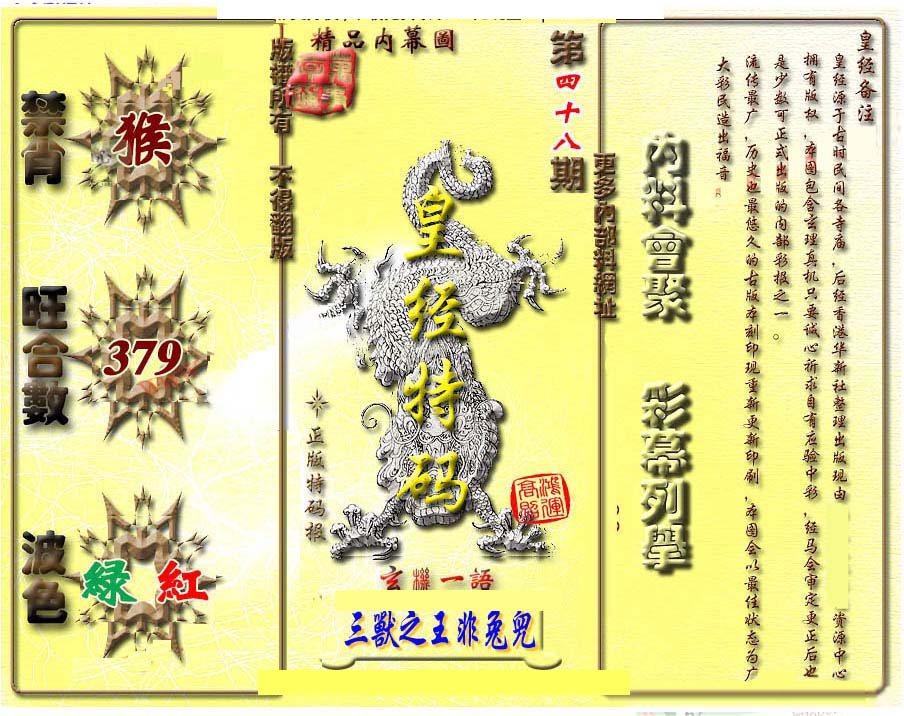 精品内幕圖
第四十八期
版權所有 不得翻版
更多內部料網址
禁肖
猴
旺合數
379
波色
綠 紅
皇经特码
正版特码报
鴻運高照
玄機一語
三獸之王非兔兒
内料會聚
彩幕列舉
皇经备注
皇经源于古时民间各寺庙，后经香港华新社整理出版现由 资源中心
拥有版权，本图包含玄理真机只要诚心祈求自有应验中彩，经马会审定更正后也
是少数可正式出版的内部彩报之一。
流传最广，历史也最悠久的古版本刻印现重新更新印刷，本图会以最佳状态为广
大彩民造出福音